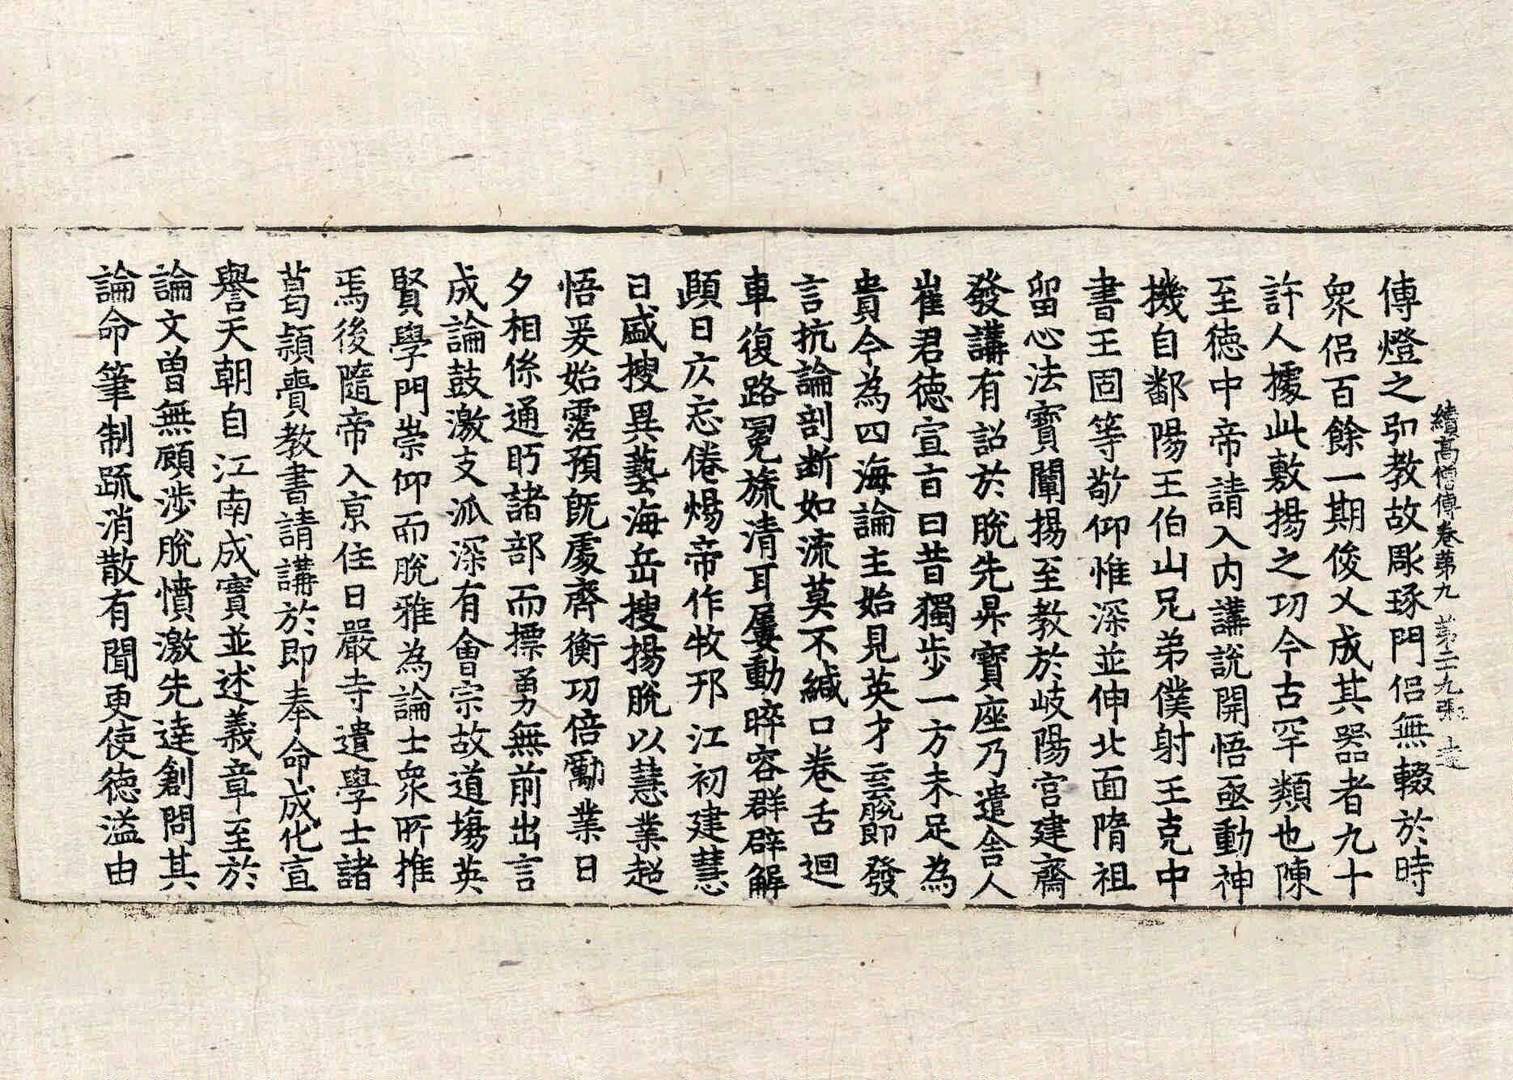 續高僧傳卷第九 第二十九張 達
傳燈之引教故彫琢門侶無輟於時
衆侶百餘一期俊乂成其器者九十
許人據此敷揚之功今古罕類也陳
至徳中帝請入内講說開悟亟動神
機自鄱陽王伯山兄弟僕射王克中
書王固等敬仰惟深並伸北面隋祖
留心法寳闡揚至教於岐陽宮建齋
發講有詔於脫先昇寳座乃遣舍人
崔君徳宣旨曰昔獨步一方未足為
貴今為四海論主始見英才云脫即發
言抗論剖断如流莫不緘口卷舌迴
車復路冕旒清耳屢動晬容群辟解
頤日仄忘倦煬帝作牧邗江初建慧
日盛搜異藝海岳搜揚脫以慧業超
悟爰始霑預既處齊衡功倍勵業日
夕相係通眄諸部而摽勇無前出言
成論鼓激支派深有會宗故道塲英
賢學門崇仰而脫雅為論士衆所推
焉後隨帝入京住日嚴寺遣學士諸
葛頴賷教書請講於即奉命成化宣
譽天朝自江南成實並述義章至於
論文曽無顧涉脫憤激先達創問其
論命筆制䟽消散有聞更使徳溢由